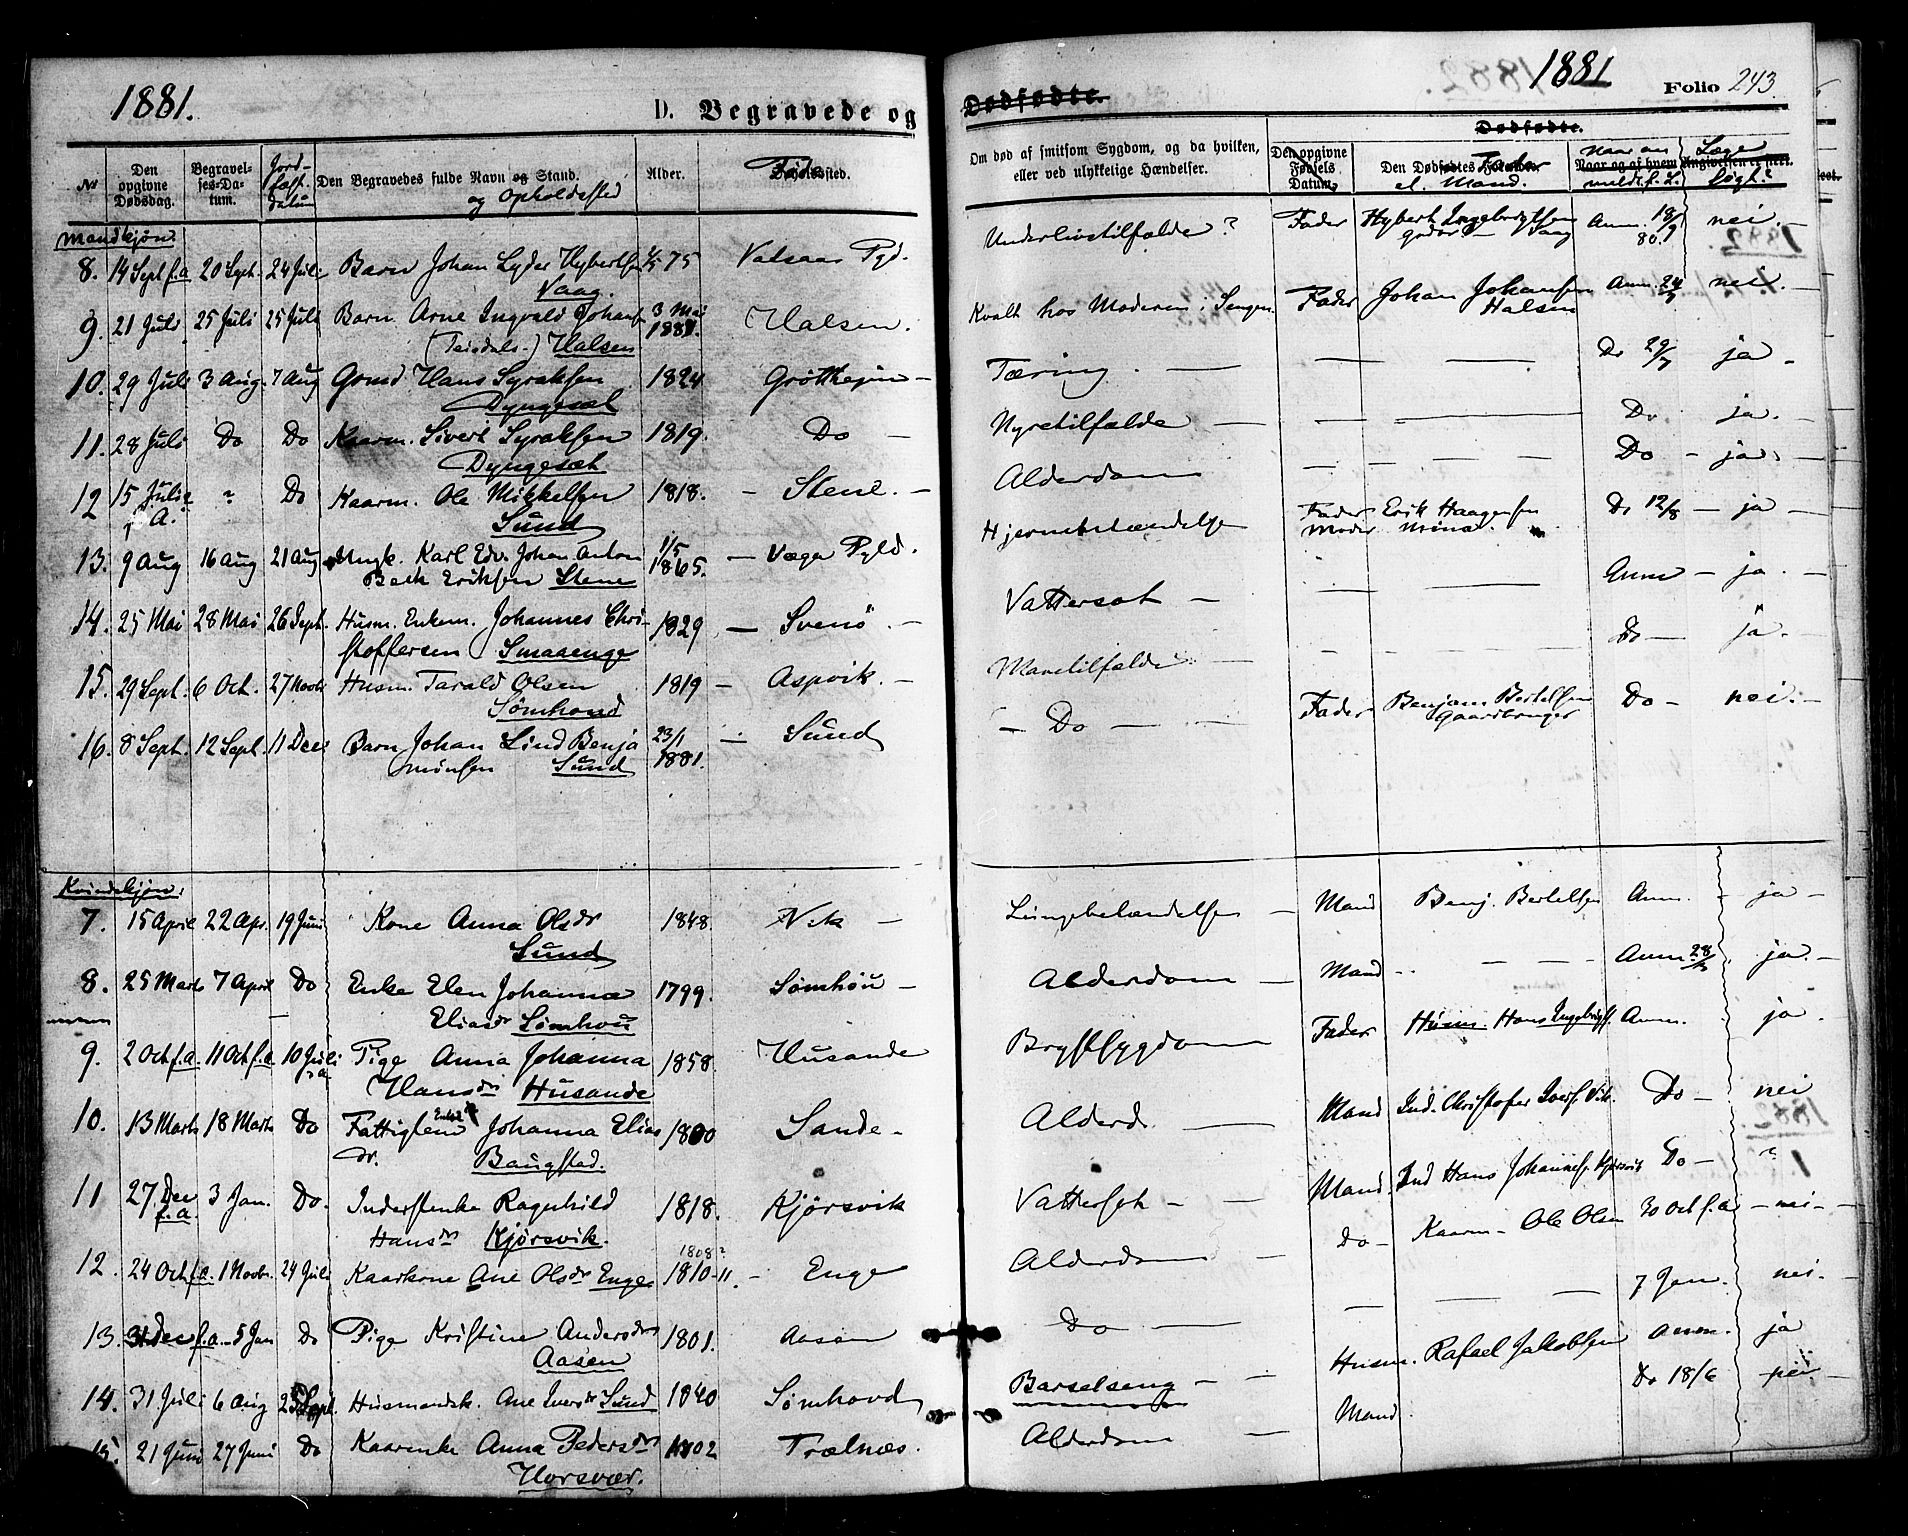 1881.
D. Begravede og
No
Den opgivne Dødsdag.
Begravelses-Datum.
Jordfæst datum
Den Begravedes fulde Navn og Stand.
og Opholdssted
Alder.
Føde sted.
Mandkjøn.
8. 14 Sept f.a 20 Sept. 24 Juli Barn Johan Lyder Hybertsen 75
Vaag.
9. 21 Juli 25 Juli 25 Juli Barn Arne Ingvald Johans 3 Mai Halsen.
Halsen 1881.
10. 29 Juli 3 Aug. 7 Aug Gmd Hans Syraksen 1824 Grøtthejm –
Dyngesæt
11. 28 Juli Do Do Kaarm. Sivert Syraksen 1819. Do –
Dyngesæt
12 15 Juli ? Do Kaarm. Ole Mikkelsen 1818. – Stene. –
A. Sund
13. 9 Aug 16 Aug 21 Aug Ungk. Karl Edv. Johan Anton 1/5 – Vega Pgld.
Beck Eriksen Stene 1865.
14. 25 Mai 28 Mai 26 Sept. Husm. Enkem. Johannes Chri- 1829 – Svenö –
stoffersen Smaaenge
15. 29 Sept. 6 Oct. 27 Novbr Husm. Tarald Olsen 1819 – Aspvik. –
Sømhovd
16. 8 Sept. 12 Sept. 11 Decr Barn Johan Lind Benja 23/1 – Sund
minsen Sund 1881.
Kvindekjøn.
7. 15 April 22 Apr. 19 Juni Kone Anna Olsdr 1848. Vik –
Sund
8. 25 Marts 7 April Do Enke Elen Johanna 1799. Sømhou –
Eliasdr Sømhou
9. 2 Oct f.a. 11 Oct f.a. 10 Juli Pige Anna Johanna 1858. Husande
Hansdr Husande
10. 13 Marts 18 Marts Do Fattiglem Enke Johanna Elias 1800 Sande –
dr. Baugstad.
11 27 Dec 3 Jan. Do. Inderstenke Ragnhild 1818. Kjørsvik
f.a. Hansdr Kjørsvik.
1808?
12. 24 Oct f.a. 1 Novbr. 24 Juli Kaarkone Ane Olsdr Enge 1810–11. – Enge
13. 31 Dec f.a. 5 Jan Do Pige Kristine Andersdr 1801. Aasen
Aasen
14. 31 Juli 6 Aug 25 Sept. Husmandsk. Ane Iversdr Sund 1840 Sømhovd
15. 21 Juni 27 Juni Do Kaarenke Anna Pedersdr 1802 Trælnæs.
Horsvær.
Dødfødte.
1881
Folio 243.
Om død af smitsom Sygdom, og da hvilken, eller ved ulykkelige Hændelser.
Den opgivne Fødsels Datum.
Dødfødte.
Den Dødfødtes Forældre
el. Mand.
Naar og af hvem
Naar an
meldt f. L.
Angivelsen er sket.
Læge
søgt?
Underlivstilfælde? Fader Hybert Ingebrigtsen Anm. 18/9 nei. –
80.
Kvalt hos Moderen i Sengen Fader Johan Johansen Anm. 24/7 nei.
Halsen
Tæring. – – – Do 29/7 ja –
Nyretilfælde – – – Do ja.
Alderdom – – Do – ja.
Hjernebetændelse Fader Erik Haagensen Do 12/8 – ja –
Moder Mina.
Vattersot – – – Anm – ja. –
Mavetilfælde – – Do – ja. –
– Do – – Fader Benjam Bertelsen Do – nei. –
Gaardbruger
Lungebetændelse – Mand Benj. Bertelsen Anm. – ja –
Alderdom – Mand – – – – Anm. 28/ ja. –
Brystsygdom Fader Husm. Hans Ingebrigts. Anm. ja.
Alderd. – Mand Ind. Christofer Ivers. Vik. Do – nei
Vattersot – – Mand. Ind Hans Johannes. Kjørsvik Do – ?
Alderdom – Do – Kaarm – Ole Olsen 30 Oct f.a – nei –
Do – – – 7 Jan. nei. –
Barselseng – – Husm. Rafael Jakobsen Anm. ja
Alderdom – Mand. Do 18/6 nei –